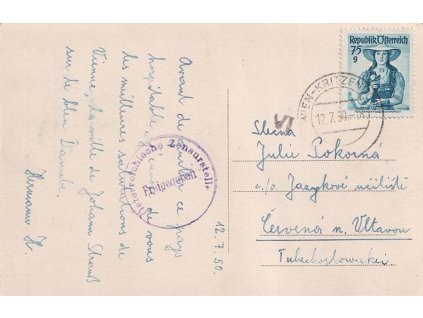 Avant de quitter ce pays
hospitable, de vous
les meilleures salutations de
Vienne, la ville de Johann Strauß
sur le bleu Danube
Hermann H.
12.7.50.
Österreichische Zensurstelle
Republik Österreich
75
g
WIEN-KRITZEN
12.7.50
VI
Slečna
Julie Pokorná
c/o Jazykové učiliště
Červená n. Vltavou
Tschechoslowakei